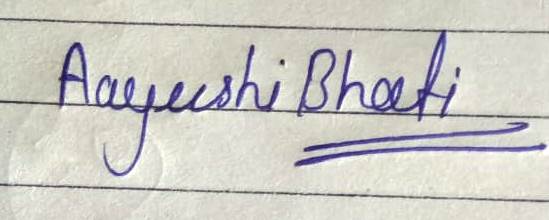 Aayushi Bhati